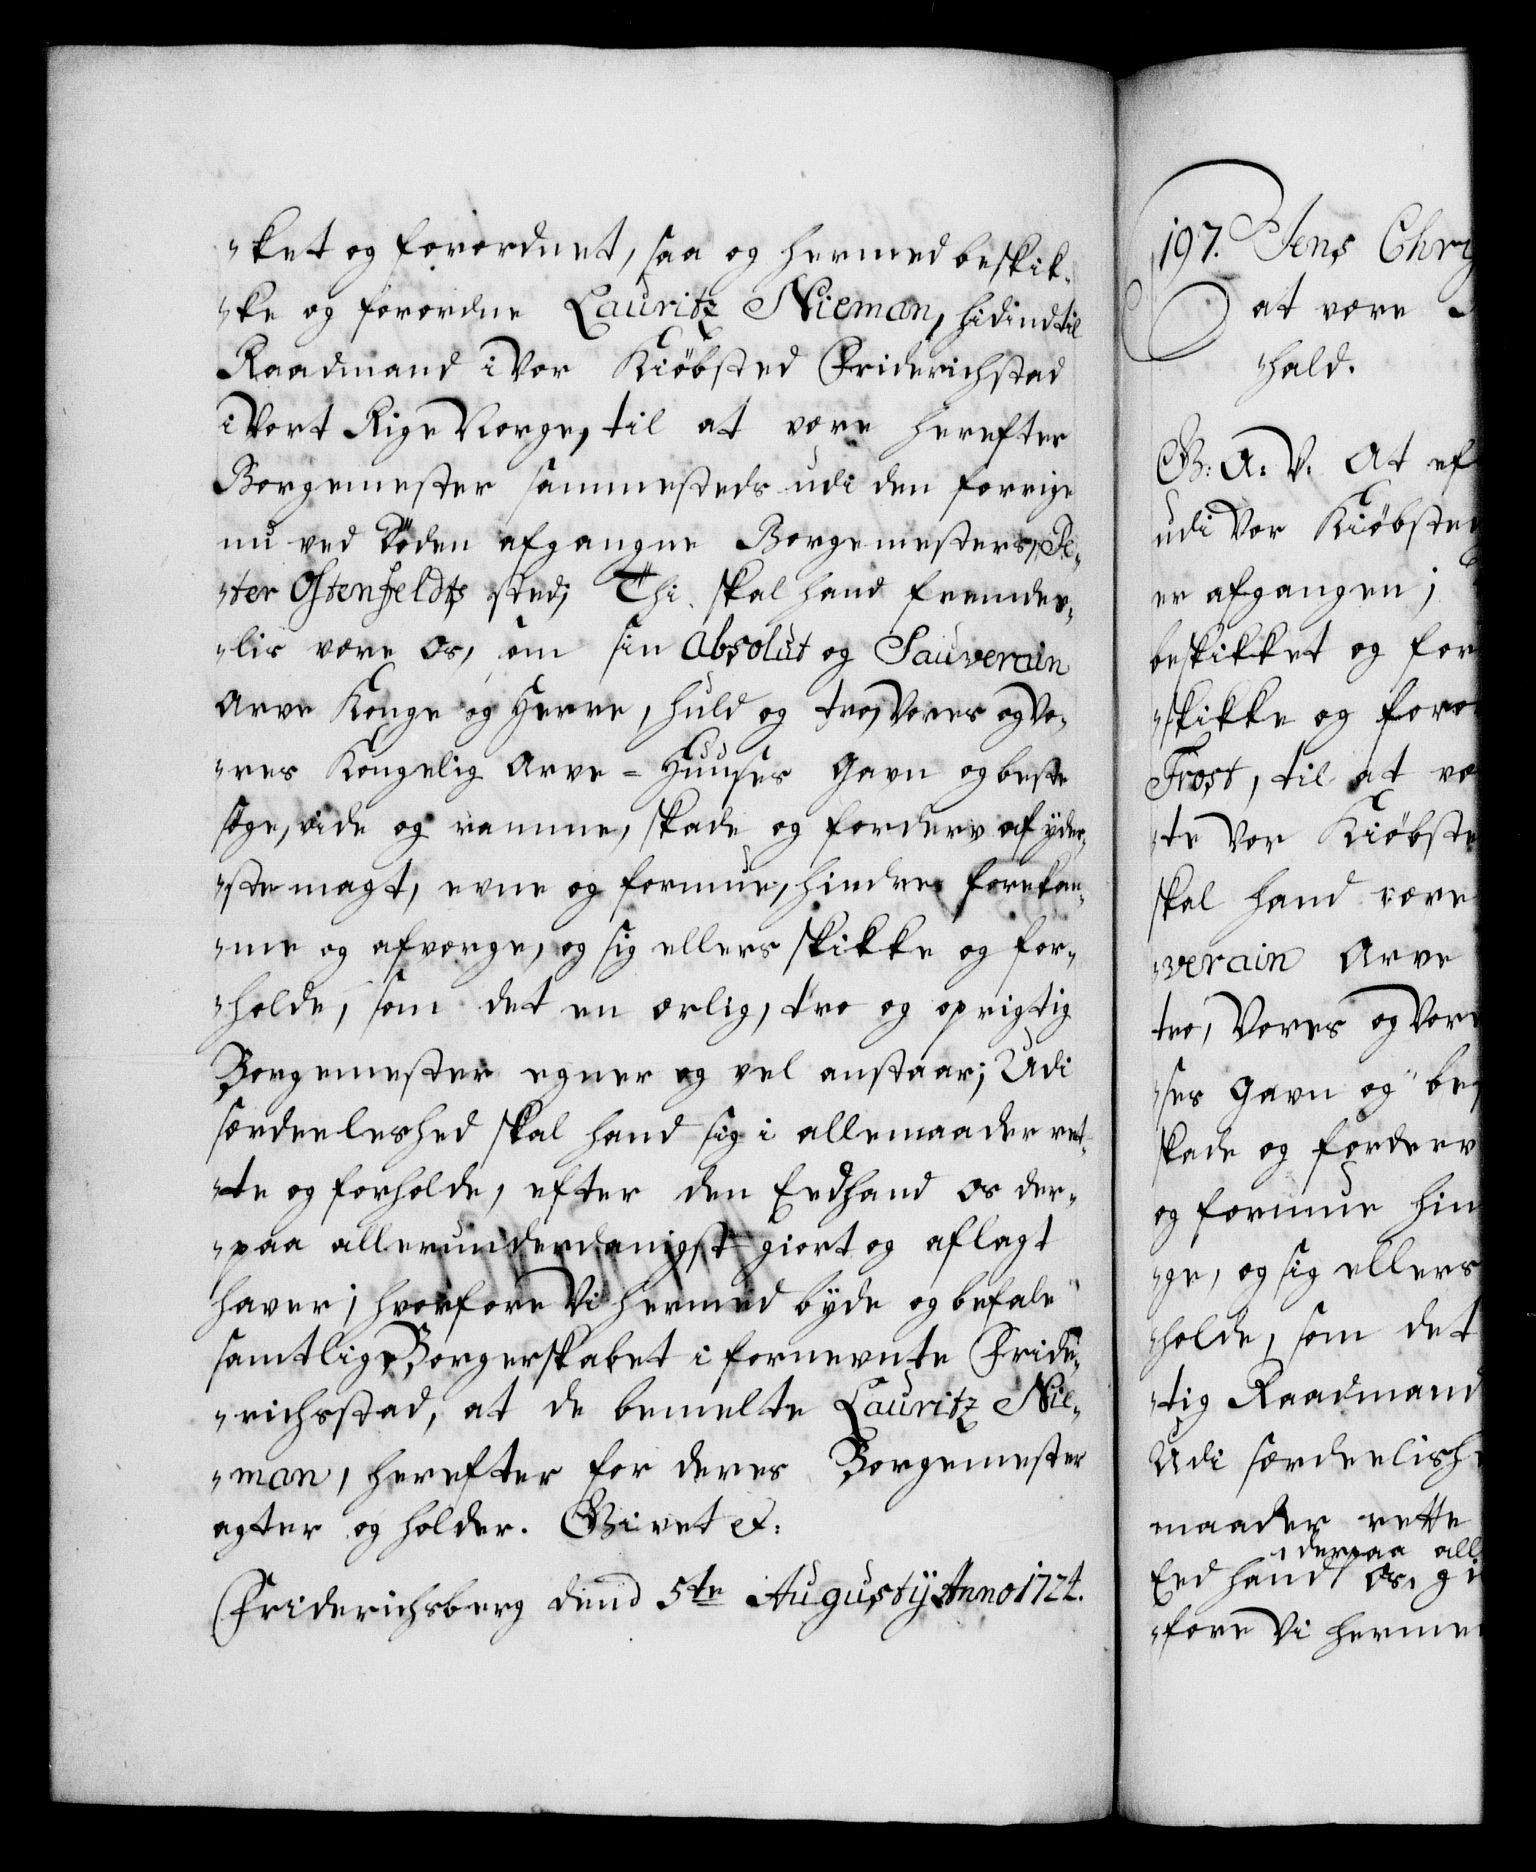 "ket og forordnet, saa og hermed beskik-
"ke og forordne Lauritz Nieman, hidindtil
Raadmand i Vor Kiøbsted Friderichstad
i Vort Rige Norge, til at være herefter
Borgemester sammesteds udi den forrige
nu ved Døden afgangne Borgemesters, Pe-
"ter Ostenfeldts sted; Thi skal hand fremde-
"lis være Os, som sin absolut og Sauverain
Arve Konge og Herre, huld og tro, Vores og Vo-
"res Kongelig Arve-Huuses Gavn og beste
søge, vide og ramme, skade og forderv af yder-
"ste magt, evne og formue, hindre forekom-
"me og afværge, og sig ellers skikke og for-
"holde, som det en ærlig, tro og oprigtig
Borgemester egner og vel anstaar; Udi
særdeeleshed skal hand sig i allemaader ret-
"te og forholde, efter den Eed hand Os der-
"paa allerunderdanigst giort og aflagt
haver; hvorfore Vi hermed byde og befale
samtlige Borgerskabet i fornevnte Fride-
"richsstad, at de bemelte Lauritz Nie-
"man, herefter for deres Borgemester
agter og holder. Givet etc:
Friderichsberg dend 5te Augustij Anno 1724.
197. Jens Chry
at være
"hald.
G: A: V. At ef
udi Vor Kiøbsted
er afgangen;
beskikket og for
"skikke og foror
Frost, til at væ
"te Vor Kiøbste
skal hand være
"verain Arve
tro, Vores og Vore
"ses Gavn og be
skade og forderv
og formue hin
"ge, og sig ellers
"holde, som det
"tig Raadmand
Udi særdeelishe
maader rette
derpaa all
Eed hand Os, gi
"fore Vi herme